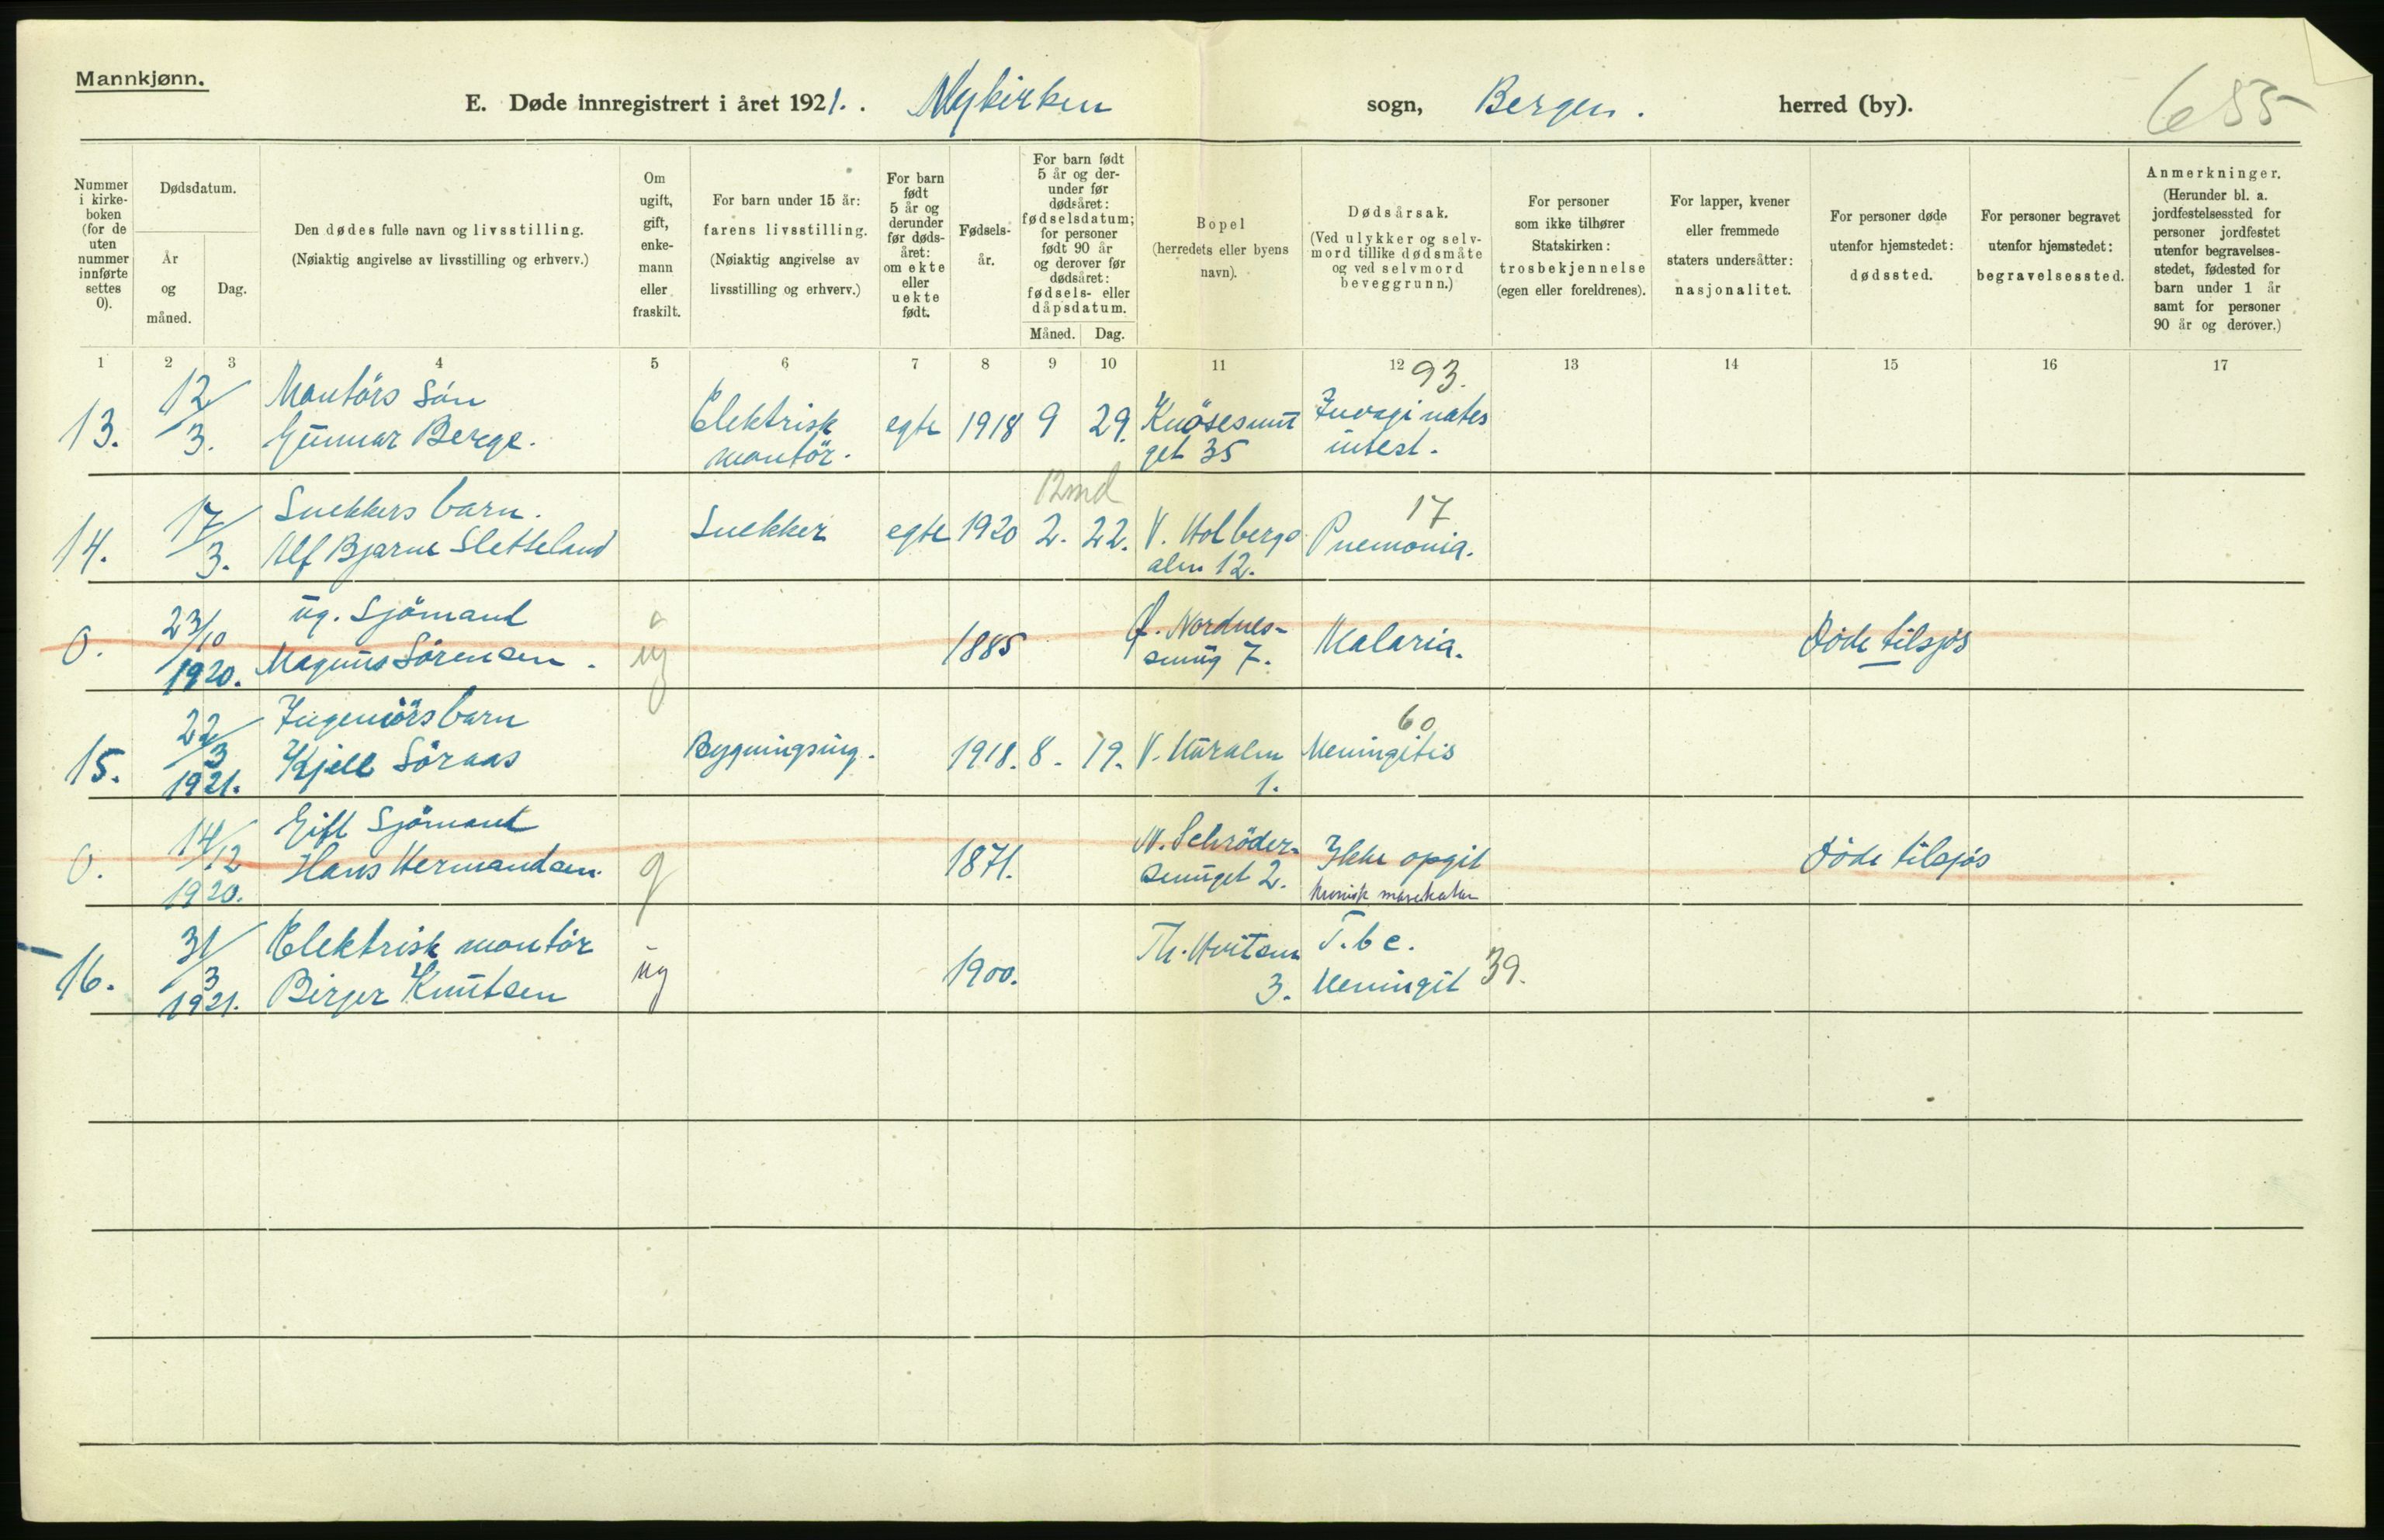 Mannkjønn.
E. Døde innregistrert i året 1921. . Nykirken sogn, Bergen. herred (by).
655
Nummer i kirke-boken (for de uten nummer innførte settes 0).
Dødsdatum.
År og måned.
Dag.
Den dødes fulle navn og livsstilling.
(Nøiaktig angivelse av livsstilling og erhverv.)
Om ugift, gift, enke-mann eller fraskilt.
For barn under 15 år:
farens livsstilling.
(Nøiaktig angivelse av livsstilling og erhverv.)
For barn født 5 år og derunder før døds-året: om ekte eller uekte født.
Fødsels-år.
For barn født 5 år og der-under før dødsåret: fødselsdatum; for personer født 90 år og derover før dødsåret: fødsels- eller dåpsdatum.
Måned. Dag.
Bopel
(herredets eller byens navn).
Dødsårsak.
(Ved ulykker og selv-mord tillike dødsmåte og ved selvmord beveggrunn.)
For personer som ikke tilhører Statskirken: trosbekjennelse (egen eller foreldrenes).
For lapper, kvener eller fremmede staters undersåtter: nasjonalitet.
For personer døde utenfor hjemstedet: dødssted.
For personer begravet utenfor hjemstedet: begravelsessted.
Anmerkninger.
(Herunder bl. a. jordfestelsessted for personer jordfestet utenfor begravelses-stedet, fødested for barn under 1 år samt for personer 90 år og derover.)
1 2 3 4 5 6 7 8 9 10 11 12 13 14 15 16 17
93.
13. 12/3. Montörs Sön
Gunnar Berge. Elektrisk montör. egte 1918 9 29. Knösesmuget 35 Invaginates intest.
12 md
17
14. 17/3. Snekkers barn.
Alf Bjarne Sletteland Snekker egte 1920 2. 22. V. Holbergsalm 12. Pnemonia.
0. 23/10 1920. ug. Sjömand
Magnus Sörensen. ug 1885 Ø. Nordnes-smug 7. Malaria. Döde tilsjös
60
15. 22/3 1921. Ingeniörsbarn
Kjell Söraas Bygningsing. 1918. 8. 19. V. Muralm 1. Meningitis
0. 14/12 1920. Gift Sjömand
Hans Hermandsen. g 1871. N. Schröder-smuget 2. Ikke opgit Döde tilsjös
Kronisk
16. 31/3 1921. Elektrisk montör
Birger Knutsen ug 1900. 3. T.b.c. Meningit 39.